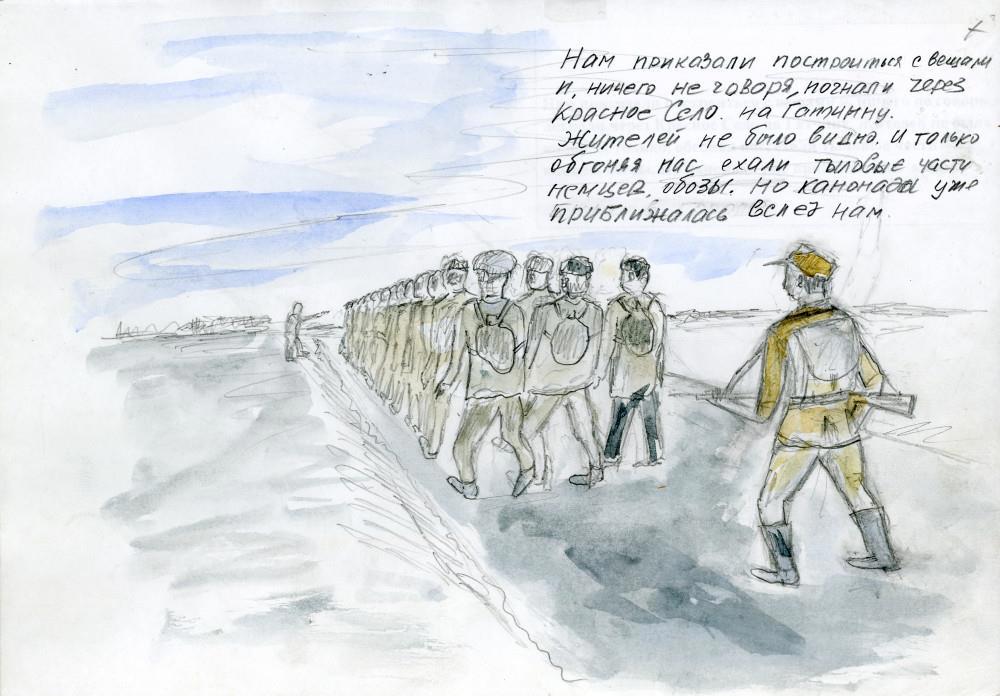 Нам приказали построиться с вещами
и, ничего не говоря, погнали через
Красное Село. на Гатчину.
Жителей не было видно. и только
обгоняя нас ехали тыловые части
немцев, обозы. Но канонада уже
приближалась вслед нам.